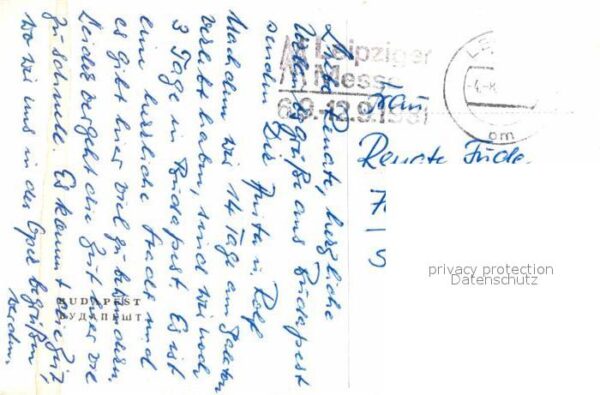 Liebe Renate, herzliche
Urlaubsgrüße aus Budapest
senden Dir Anita u. Rolf
Nachdem wir 14 Tage am Balaton
verlebt haben, sind wir noch
3 Tage in Budapest. Es ist
eine herrliche Stadt und
es gibt hier viel zu bewundern.
Leider vergeht die Zeit hier viel
zu schnell. Es kommt die Zeit,
wo wir uns in der Oper begrüßen
werden.
BUDAPEST
БУДАПЕШТ
Leipziger
Messe
6.9.-12.9.1981
-4.-8.
om
Frau
Renate
7
1
S
privacy protection
Datenschutz